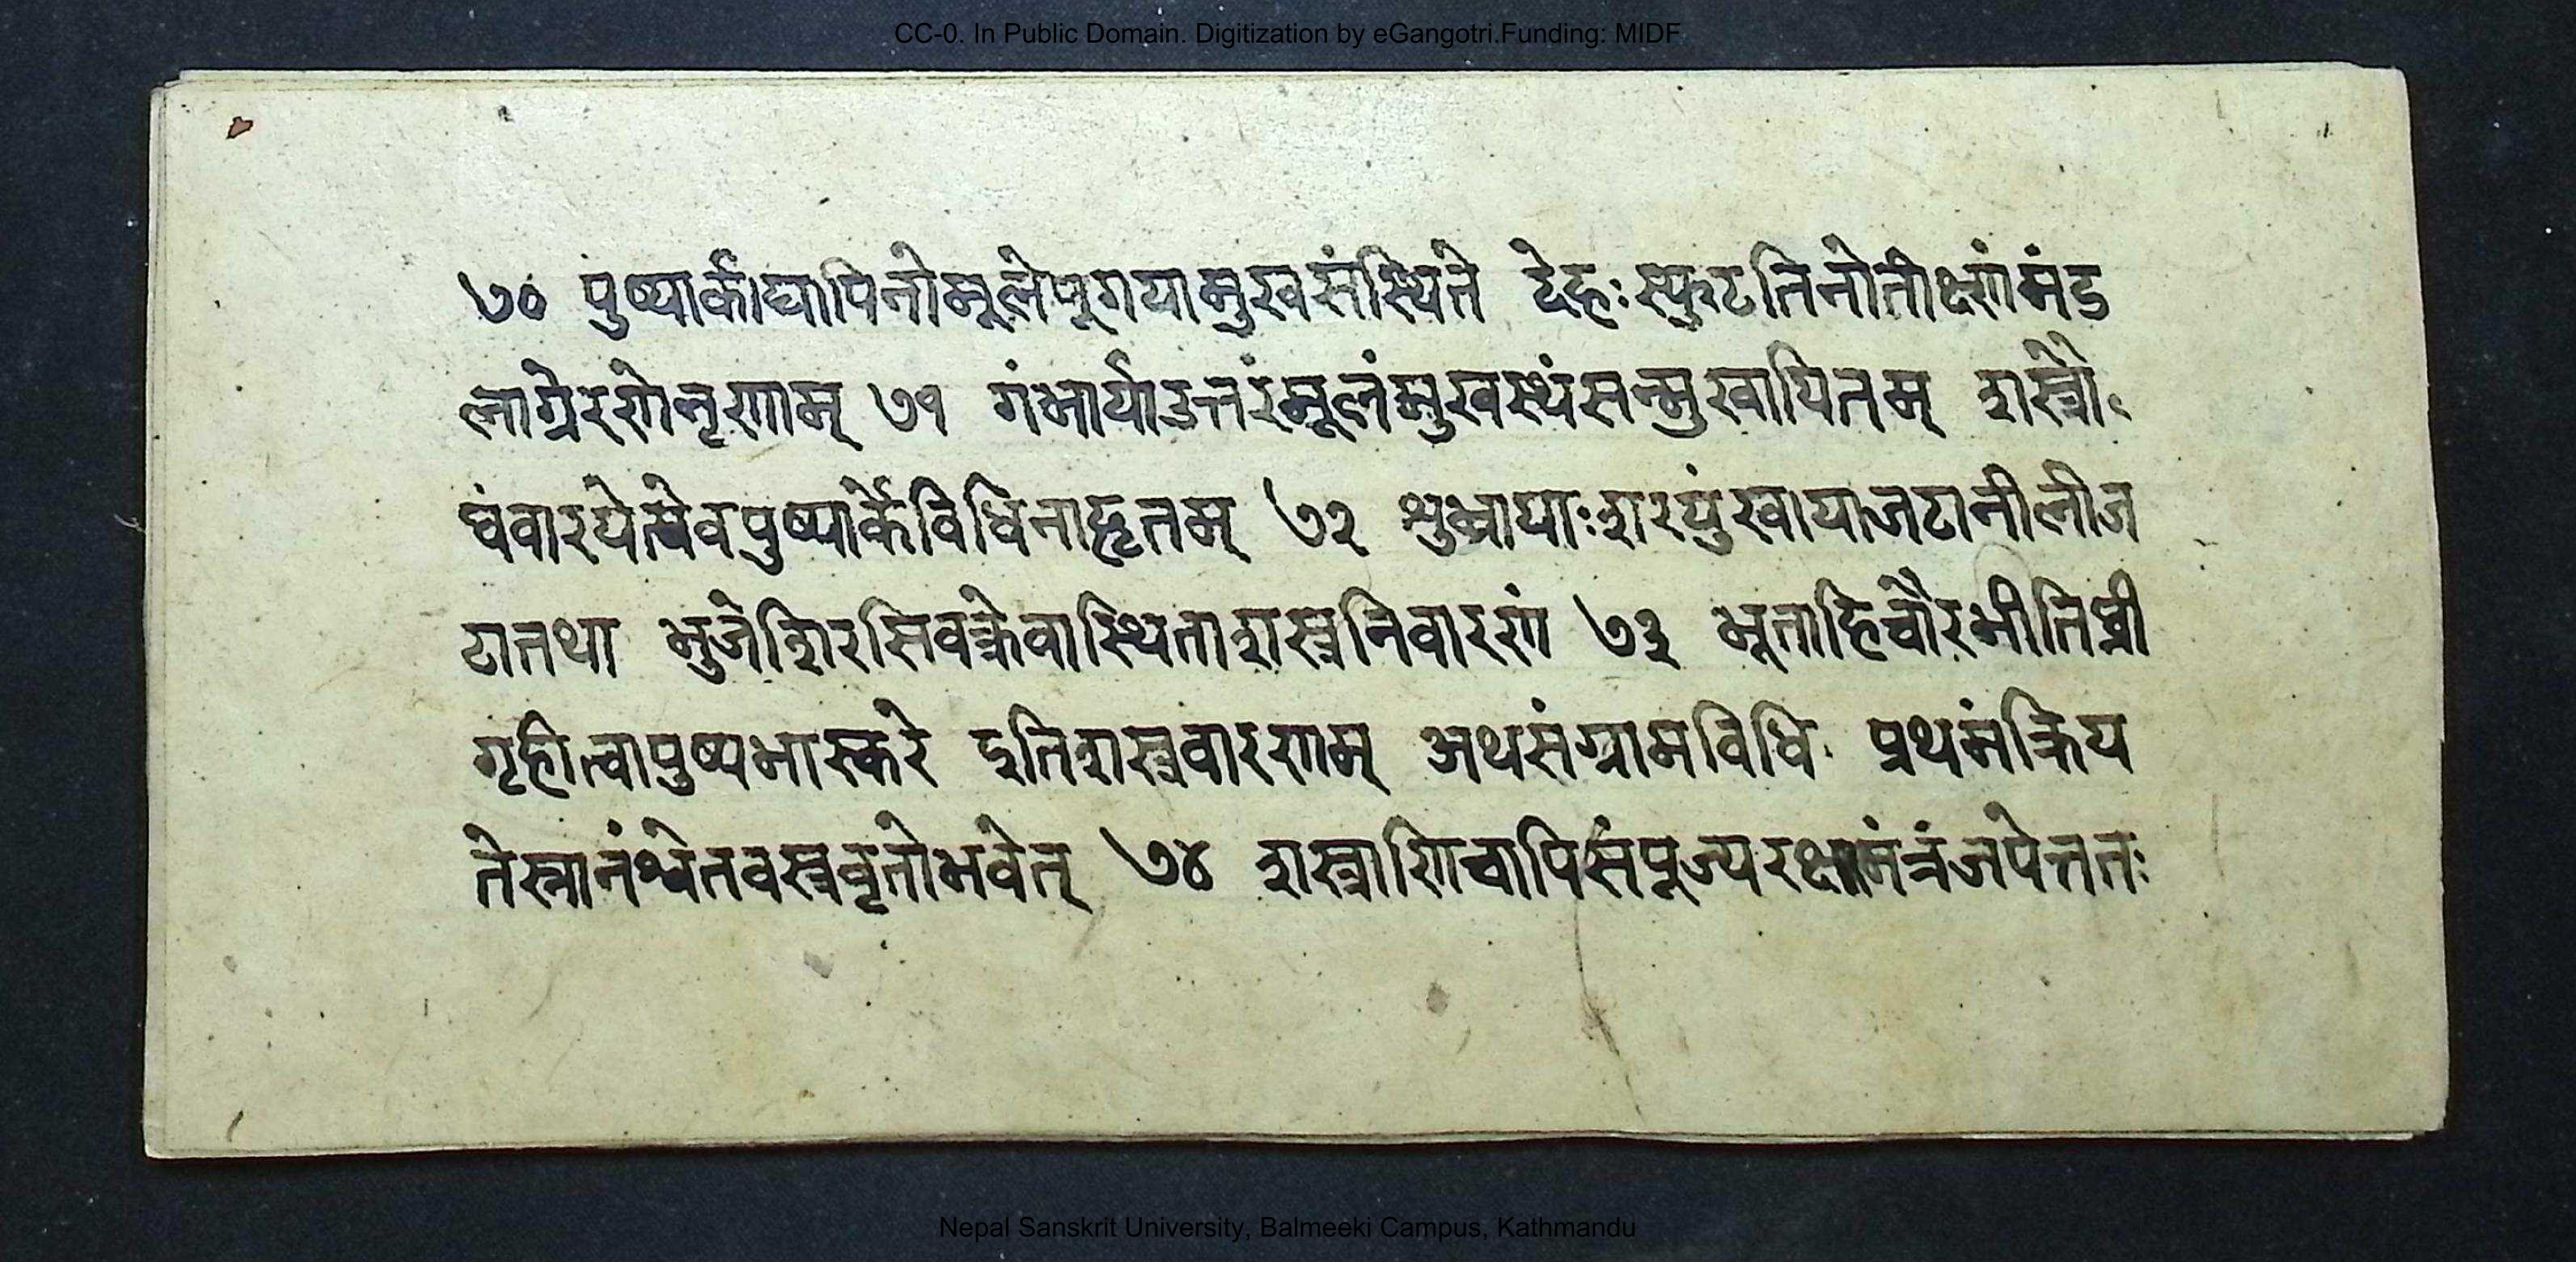 CC-0. In Public Domain. Digitization by eGangotri.Funding: MIDF
७० पुष्यार्काघापिनोमूलेपूगयामुखसंस्थिते देहःस्फुटतिनोतीक्ष्णंमंड
लाग्रेरणेनृणाम् ७१ गंभार्याउत्तरंमूलंमुखस्थंसन्मुखायितम् शस्त्रौ
घंवारयेत्सेवपुष्यार्केविधिनाहृतम् ७२ शुभ्रायाःशरपुंखायाजटानीलीज
टातथा भुजेशिरसिवक्त्रेवास्थिताशस्त्रनिवारणं ७३ भूताहिचौरभीतिघ्नी
गृहीत्वापुष्यभास्करे इतिशस्त्रवारणम् अथसंग्रामविधिः प्रथमंक्रिय
तेस्नानंश्वेतवस्त्रवृतोभवेत् ७४ शस्त्राणिचापिसंपूज्यरक्षामंत्रंजपेत्ततः
Nepal Sanskrit University, Balmeeki Campus, Kathmandu